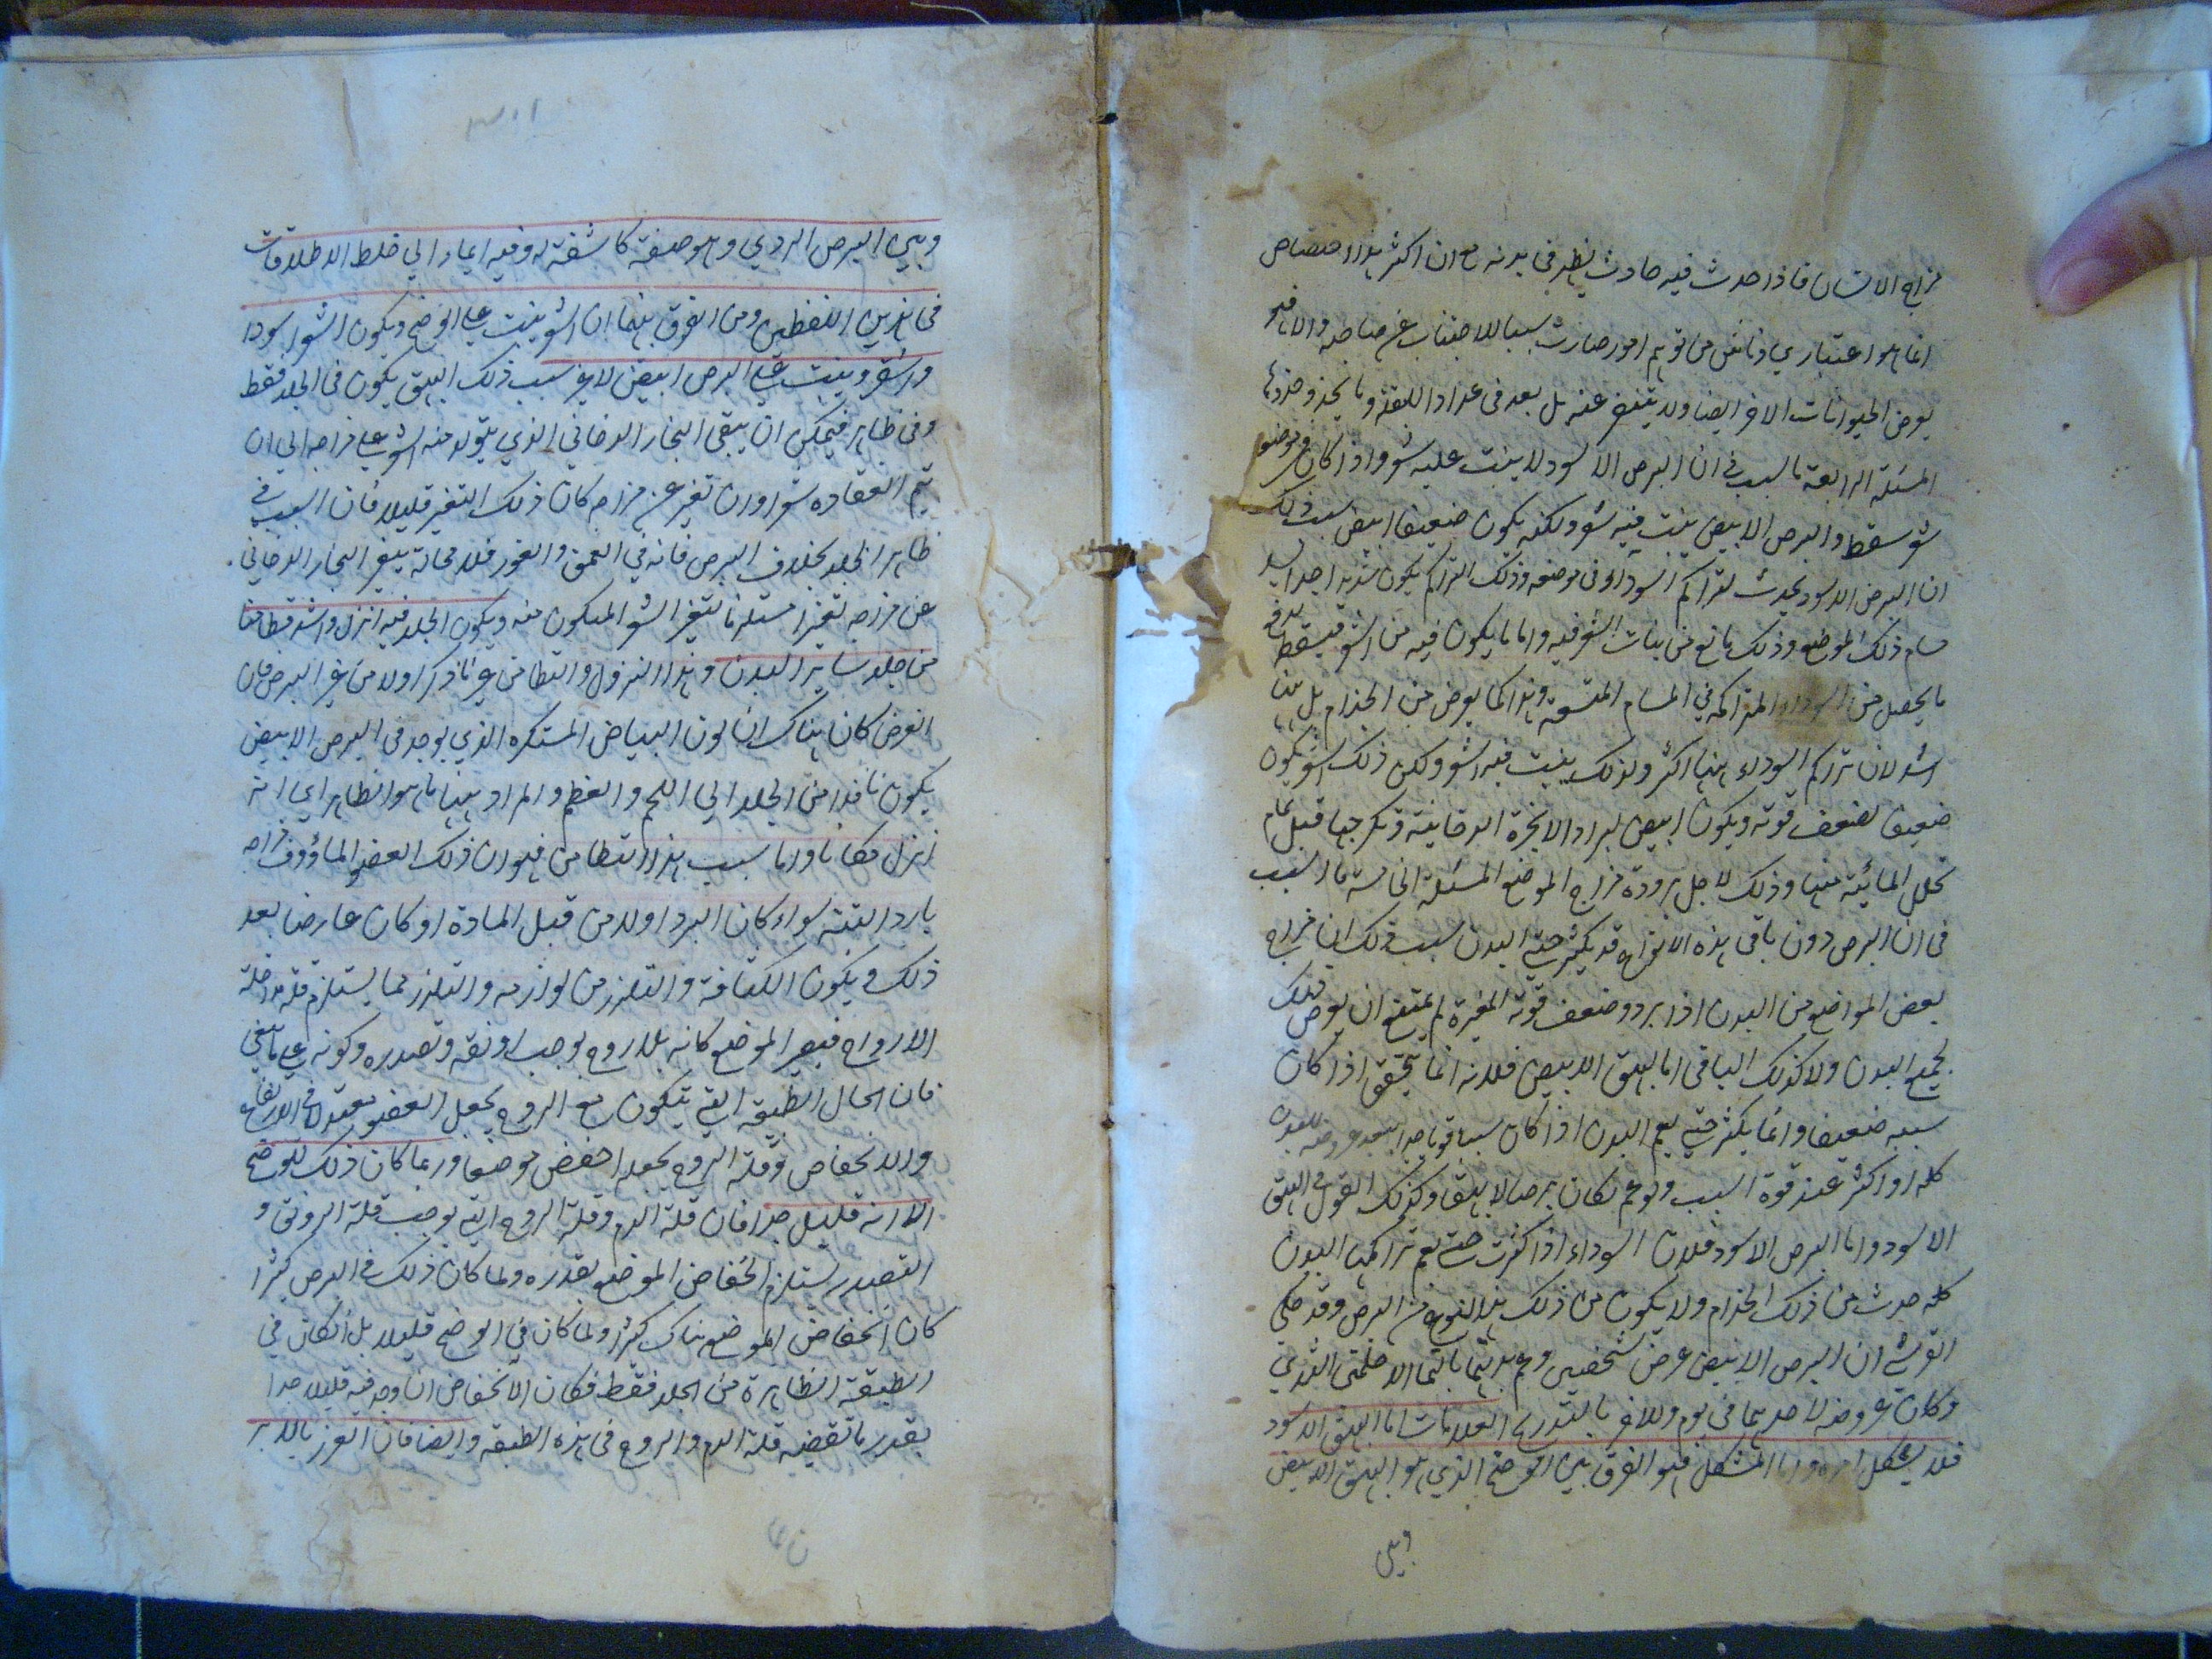 مزاج الانسان فاذا حدث فيه حادث يظهر في بدنه مع ان اكثر هذا الاختصاص
انما هو اعتباري ناش من توهم امور صارت سببا للاجتناب عن صاحبه والا فهو
يعرض الحيوانات الاخر ايضا ولا يتنفر عنه بل يعد في عداد البلقة وما يحذو حذوها
المسئلة الرابعة ما السبب في ان البرص الاسود لا ينبت عليه شعر واذا كان موضع
شعر سقط والبرص الابيض ينبت فيه شعر ولكنه يكون ضعيفا ابيض سبب ذلك
ان البرص الاسود يحدث لتراكم السوداء في موضعه وذلك التراكم يكون شديدا جدا
مسام ذلك الموضع وذلك مانع من نبات الشعر فيه واما ما يكون فيه من الشعر فيسقط
ما يحصل من السوداء المتراكمة في المسام وهذا كما يعرض من الجذام بل هنا
اشد لان تراكم السوداء هنا اكثر ولذلك ينبت فيه الشعر ولكن ذلك الشعر يكون
ضعيفا لضعف قوته ويكون ابيض لبرد الابخرة الدخانية وتكرجها قبل تمام
تحلل المائية عنها وذلك لاجل برودة مزاج الموضع المسئلة الخامسة ما السبب
في ان البرص دون باقي هذه الانواع قد يكثر حتى البدن سبب ذلك ان مزاج
بعض المواضع من البدن اذا برد وضعف قوته المغيرة لم يمتنع ان يعرض ذلك
لجميع البدن ولا كذلك الباقي اما البهق الابيض فلانه انما يتحقق اذا كان
سببه ضعيفا وانما يكثر حتى يعم البدن اذا كان سببا قويا جدا للبدن
كله او اكثر عند قوة السبب ولو عم لكان برصا لا بهقا وكذلك القول في البهق
الاسود واما البرص الاسود فلان السوداء اذا كثرت حتى يعم تراكمها البدن
كله حدث من ذلك الجذام ولا يكون من ذلك هذا النوع من البرص وقد حكى
القرشي ان البرص الابيض عرض لشخصين وعم بدنيهما بالتمام الا حلمتي الثديين
وكان عروضه لاحدهما في يوم وللاخر بالتدريج العلامات اما البهق الاسود
فلا يشكل امره واما المشكل فهو الفرق بين الوضح الذي هو البهق الابيض
وبين
وبين البرص الردي وهو صفة كاشفة له وفيه ايماء الي خلط الاطلاقات
في هذين اللفظين ومن الفرق بينهما ان الشعر ينبت على الوضح ويكون الشعر اسودا
واشقر وينبت على البرص ابيض لا غير سبب ذلك البهق يكون في الجلد فقط
وفي ظاهر فيمكن ان يبقى البخار الدخاني الذي يتولد منه الشعر على مزاجه الي ان
يتم انعقاده شعرا وان تغير عن مزاجه كان ذلك التغير قليلا فان السبب في
ظاهر الجلد بخلاف البرص فانه في العمق والغور فلا محالة يتغير البخار الدخاني
عن مزاجه تغيرا مستلزما لتغير الشعر المتكون منه ويكون الجلد فيه انزل واشد تطامنا
من جلد ساير البدن وهذا النزول والتطامن غير ما ذكر اولا من غير البرص فان
الغرض كان هناك ان لون البياض المستكره الذي يوجد في البرص الابيض
يكون نافذا من الجلد الي اللحم والعظم والمراد هنا ما هو الظاهر اي انه
انزل مكانا واما سبب هذا التطامن فهو ان ذلك العضو الماؤوف مزاجه
بارد البتة سواء كان البرد اولا من قبل المادة او كان عارضا بعد
ذلك ويكون الكثافة والتلزز من لوازمه والتلزز مما يستلزم قلة مداخلة
الارواح فيصير الموضع كانه بلا روح يوجب رونقه وتصدره وكونه على ما ينبغي
فان الحال الطبيعية التي يتكون مع الروح يجعل العضو معتدلا في الارتفاع
والانخفاض وقلة الروح يجعله اخفض موضعا وربما كان ذلك للوضح
الا انه قليل جدا فان قلة الدم وقلة الروح التي يوجب قلة الرونق و
التصدر يستلزم انخفاض الموضع بقدره ولما كان ذلك في البرص كثيرا
كان انخفاض الموضع هناك كثيرا ولما كان في الوضح قليلا بل كان في
الطبقة الظاهرة من الجلد فقط فكان الانخفاض ان وجد فيه قليلا جدا
بقدر ما تقتضيه قلة الدم والروح في هذه الطبقه وايضا فان الغرز بالابر